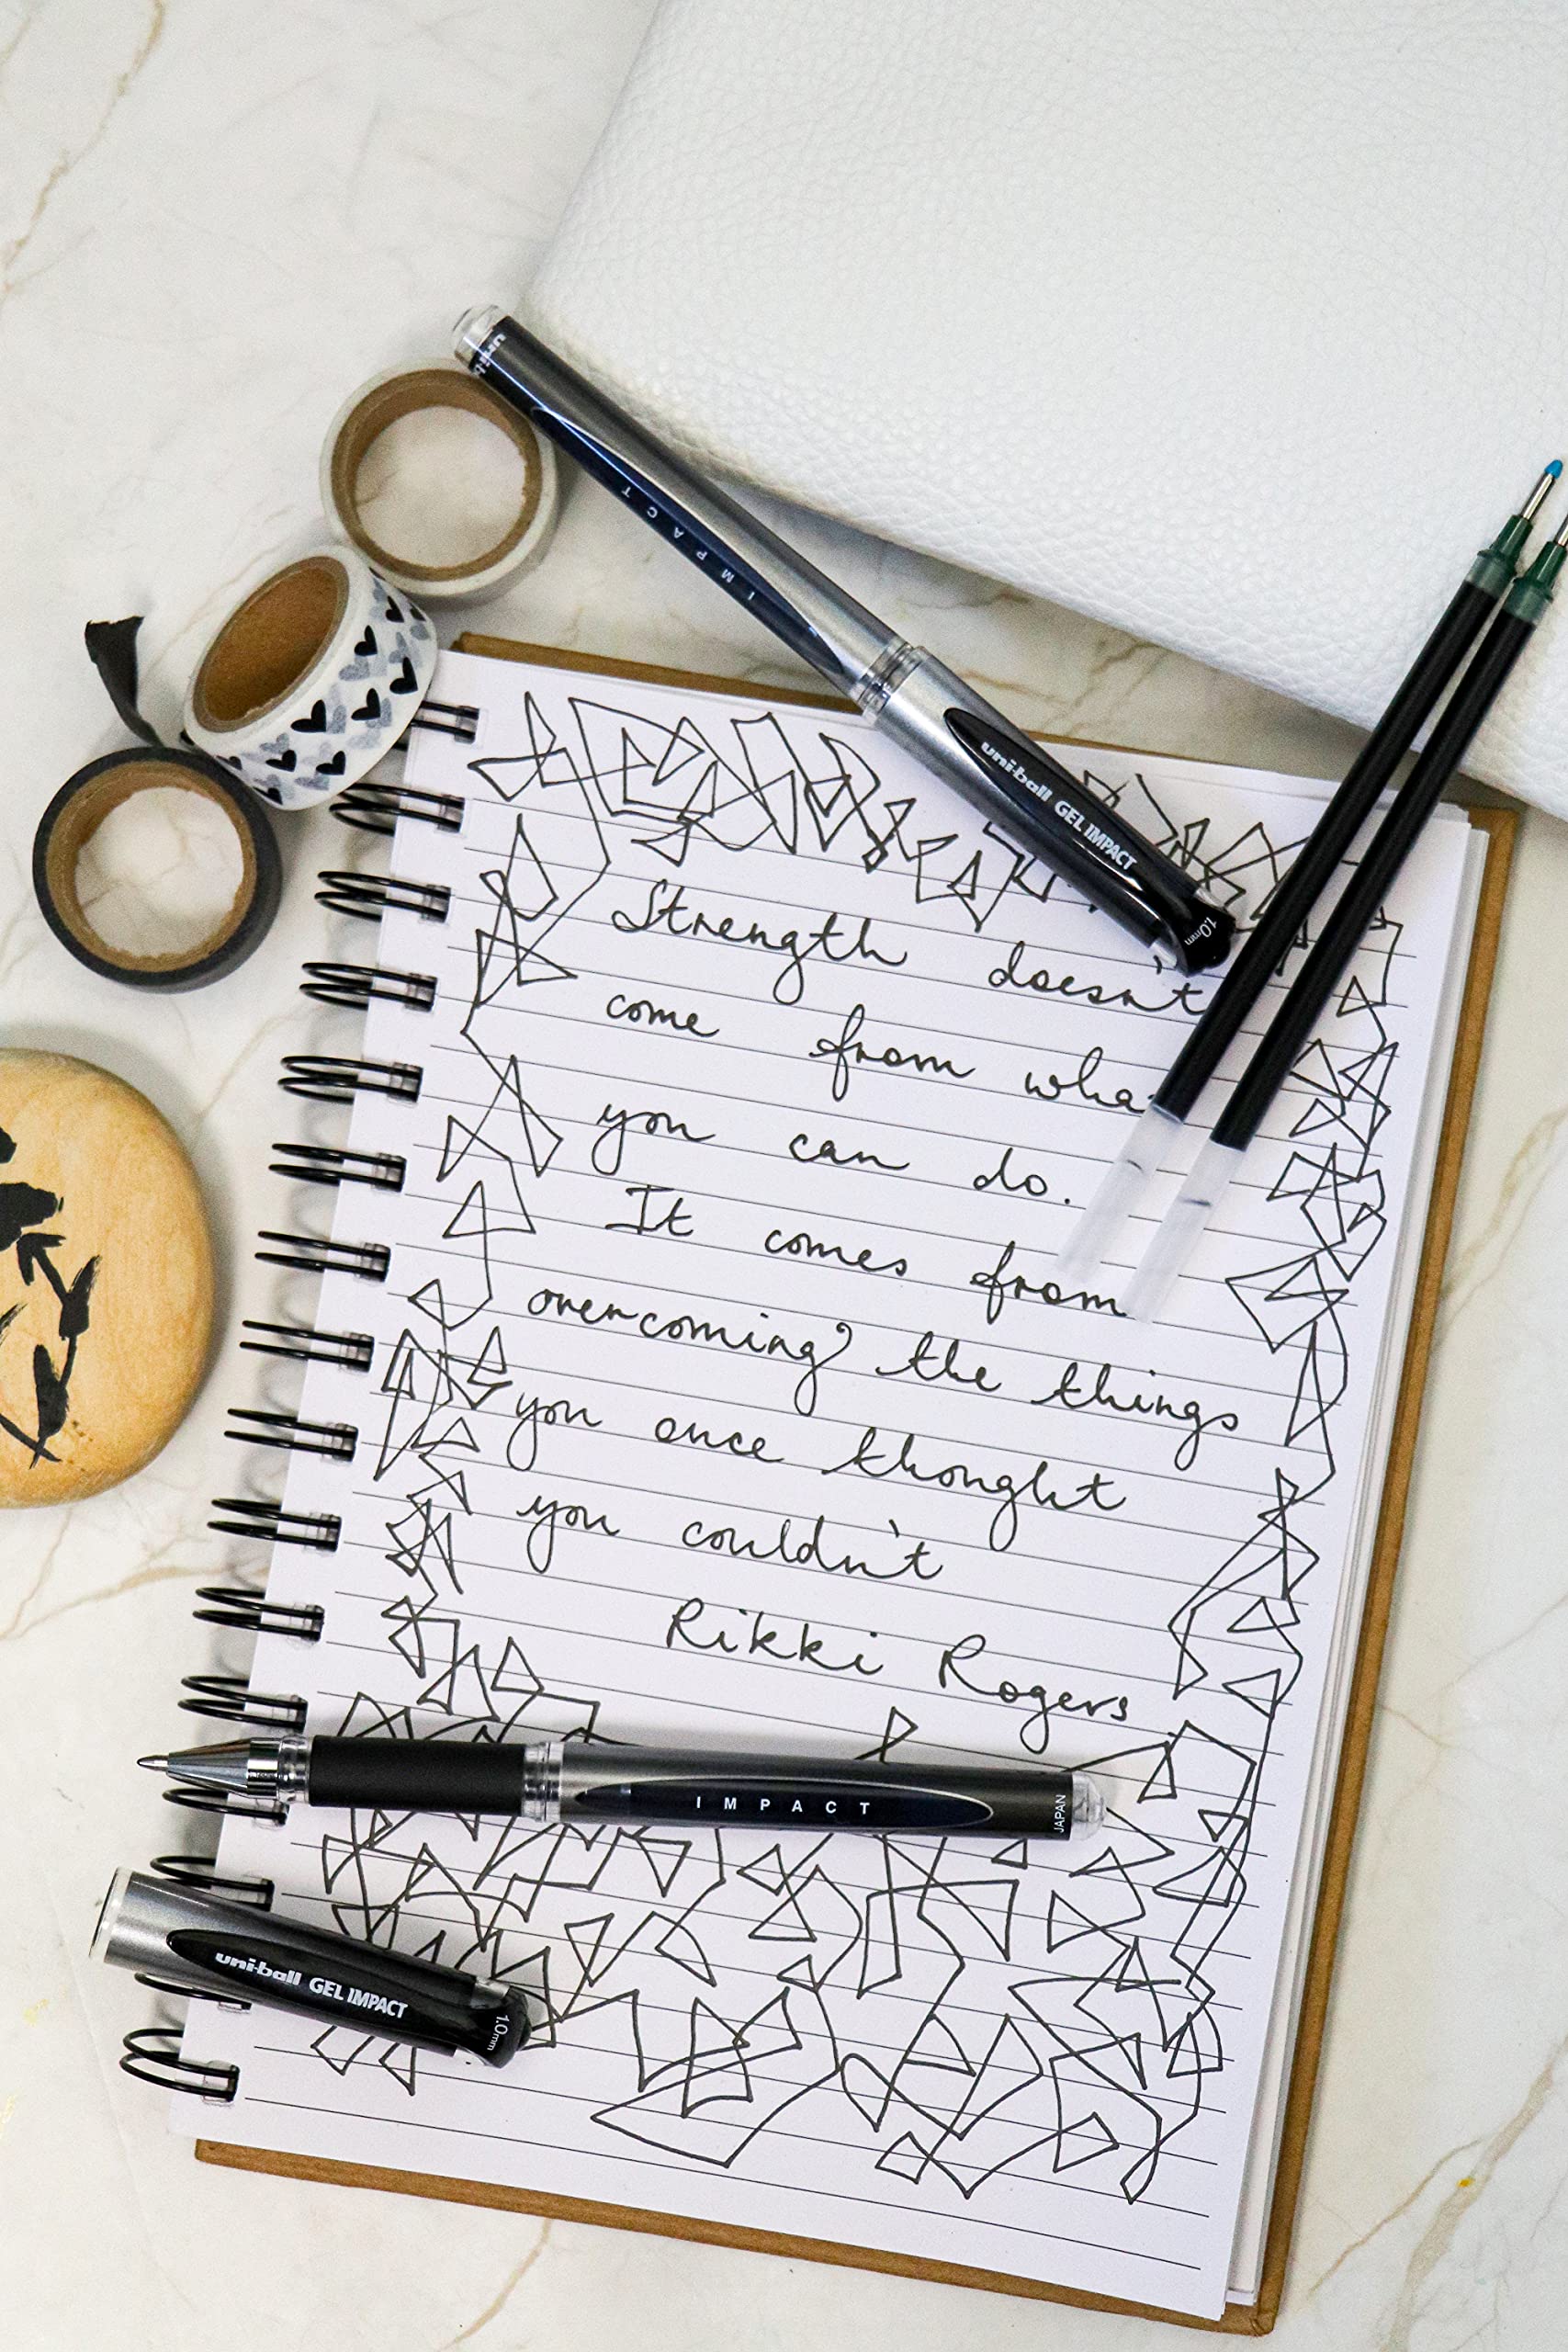 uni-b
IMPACT
uni-ball GEL IMPACT
1.0mm
Strength doesn't
come from wha
you can do.
It comes from
overcoming the things
you once thought
you couldn't
Rikki Rogers
IMPACT
JAPAN
uni-ball GEL IMPACT
1.0mm